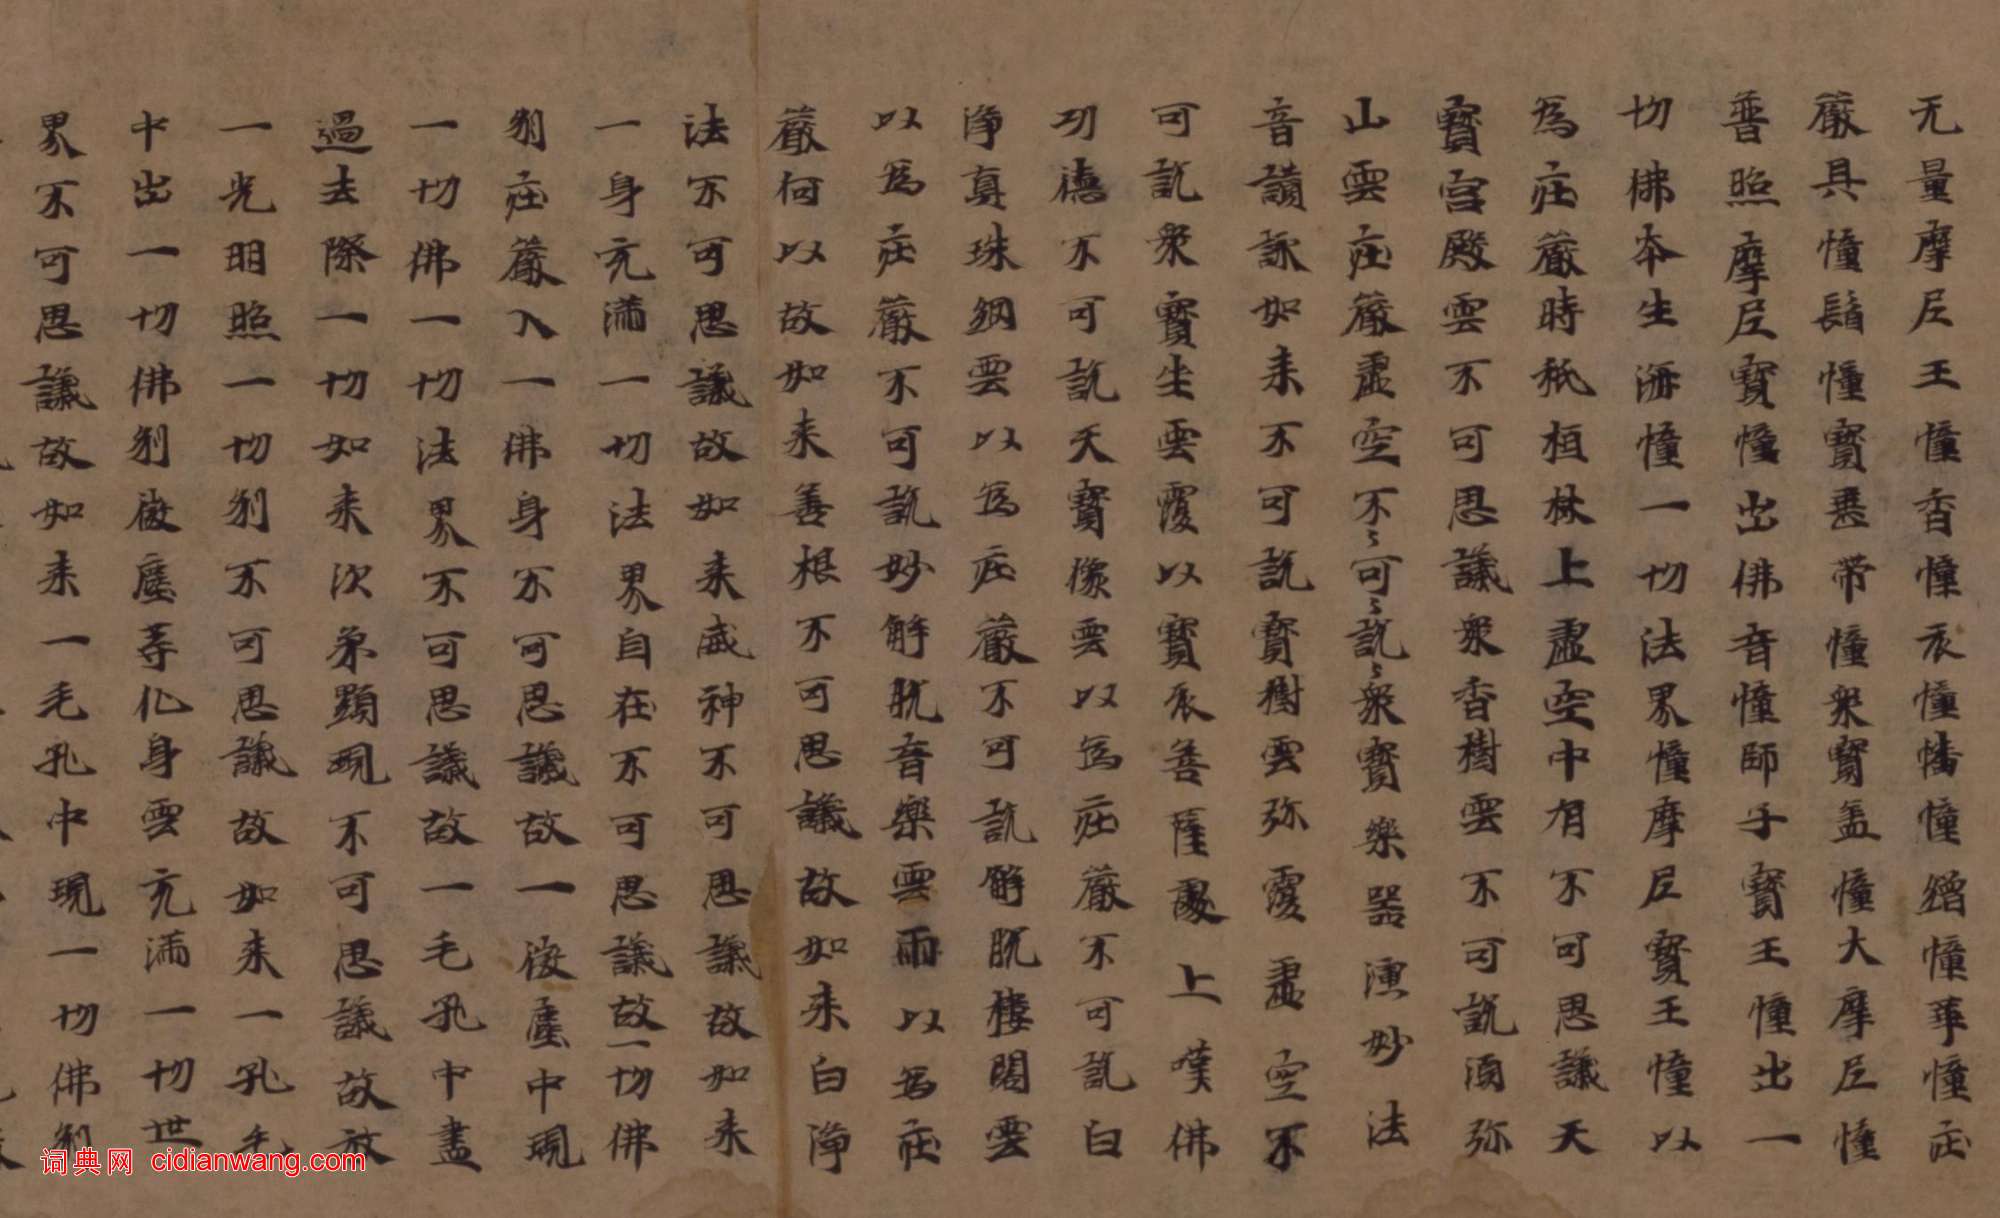 无量摩尼王幢香幢衣幢幡幢繒幢華幢莊
嚴具幢鬘幢寶垂帶幢衆寶盖幢大摩尼幢
普照摩尼寶幢出佛音幢師子寶王幢出一
切佛本生海幢一切法界幢摩尼寶王幢以
為莊嚴時秖桓林上虛空中有不可思議天
寶宮殿雲不可思議衆香樹雲不可說須弥
山雲莊嚴虛空不可說衆寶樂器演妙法
音讃詠如来不可說寶樹雲弥覆虛空不
可說衆寶坐雲覆以寶衣菩薩處上嘆佛
功德不可說天寶像雲以為莊嚴不可說白
淨真珠網雲以為莊嚴不可說解脫樓閣雲
以為莊嚴不可說妙解脫音樂雲雨以為莊
嚴何以故如来善根不可思議故如来白淨
法不可思議故如来威神不可思議故如来
一身充滿一切法界自在不可思議故一切佛
刹莊嚴入一佛身不可思議故一微塵中現
一切佛一切法界不可思議故一毛孔中盡
過去際一切如来次第顯現不可思議故放
一光明照一切刹不可思議故如来一孔毛
中出一切佛刹微塵等化身雲充滿一切世
界不可思議故如来一毛孔中現一切佛刹
词典网 cidianwang.com